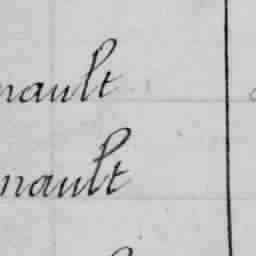 nault
nault